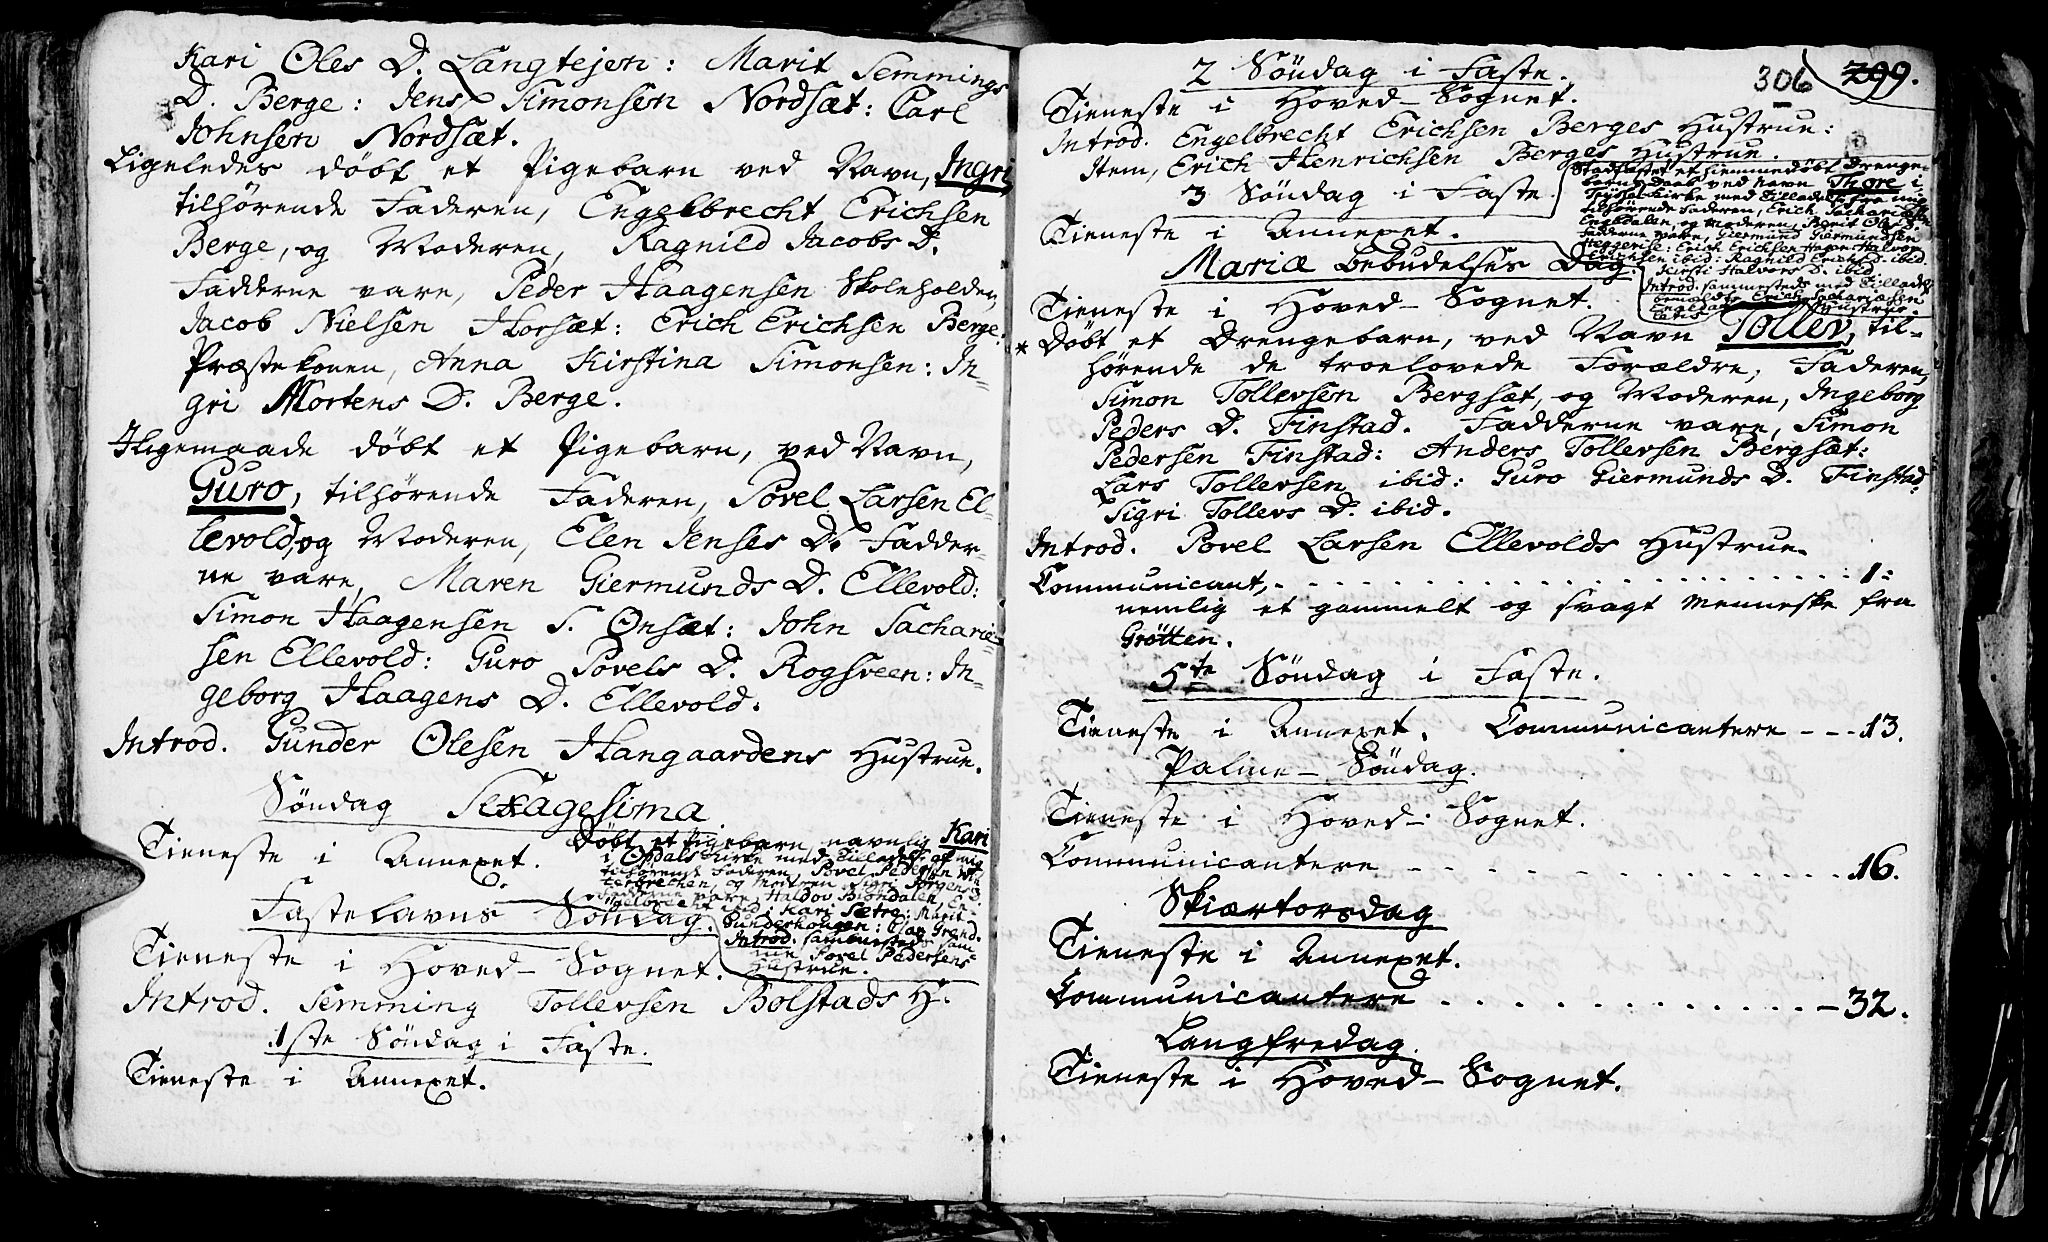 Kari Oles D. Langtejen: Marit Semmings
D. Berge: Jens Simonsen Nordsæt: Carl
Johnsen Nordsæt.
Ligeledes døbt et Pigebarn ved Navn, Ingri
tilhørende Faderen, Engelbrecht Erichsen
Berge, og Moderen, Ragnild Jacobs D.
Fadderne vare, Peder Haagensen Skoleholder,
Jacob Nielsen Horsæt: Erich Erichsen Berge:
Præstekonen, Anna Kirstina Simonsen: In-
gri Mortens D. Berge.
Iligemaade døbt et Pigebarn, ved Navn,
Guro, tilhørende Faderen, Povel Larsen El-
levold, og Moderen, Elen Jenses D. Fadder-
ne vare, Maren Giermunds D. Ellevold:
Simon Haagensen S. Onsæt: John Sacharie-
sen Ellevold: Guro Povels D. Rogsveen: In-
geborg Haagens D. Ellevold.
Introd. Gunder Olesen Hangaardens Hustrue.
Søndag Sexagesima
Tieneste i Annexet.
Døbt et Pigebarn navnlig Kari
i Opdals Kirke med Tilladelse af mig
tilhørende Faderen, Povel Pedersen
og Moderen Sigri Jørgens D.
Fadderne vare, Haldov Biondalen, En-
gelbrecht ibid: Kari Sætre: Marit
Gunderhougen: Olav Grend.
Introd. sammesteds sam-
me Povel Pedersens
Hustrue.
Fastelavns Søndag.
Tieneste i Hoved-Sognet.
Introd. Semming Tollevsen Bolstads H.
1ste Søndag i Faste.
Tieneste i Annexet.
306 299.
2 Søndag i Faste.
Tieneste i Hoved-Sognet.
Introd. Engelbrecht Erichsen Berges Hustrue:
Item, Erich Henrichsen Berges Hustrue.
3 Søndag i Faste.
Tieneste i Annexet.
Stadfæstet et hiemmedøbt Drenge-
barns Daab ved Navn Thore i
Kirke med Tilladelse fra mig
tilhørende Faderen, Erich Sachariesen
Engelsdalen, og Moderen, Marit Oles D.
Fadderne vare, Giermund Giermundsen
Heggerise: Erich Erichsen Halvor
Erichsen ibid: Ragnild Erichs D. ibid.
Kirsti Halvors D. ibid.
Introd. sammesteds med Tilladelse
bemældte Erich Sachariesen
Hustrue.
Mariæ Bebudelses Dag.
Tieneste i Hoved-Sognet.
* Døbt et Drengebarn, ved Navn Tollev, til-
hørende de troelovede Forældre, Faderen,
Simon Tollevsen Bergsæt, og Moderen, Ingeborg
Peders D. Finstad. Fadderne vare, Simon
Pedersen Finstad: Anders Tollevsen Bergsæt:
Lars Tollevsen ibid: Guro Giermunds D. Finstad:
Sigri Tollevs D. ibid.
Introd. Povel Larsen Ellevolds Hustrue.
Communicant, - - - - 1:
nemlig et gammelt og svagt Menneske fra
Grøtten.
5te Søndag i Faste.
Tieneste i Annexet. Communicantere - - - 13.
Palme-Søndag.
Tieneste i Hoved-Sognet.
Communicantere - - - - 16.
Skiærtorsdag
Tieneste i Annexet.
Communicantere - - - - 32.
Langfredag.
Tieneste i Hoved-Sognet.